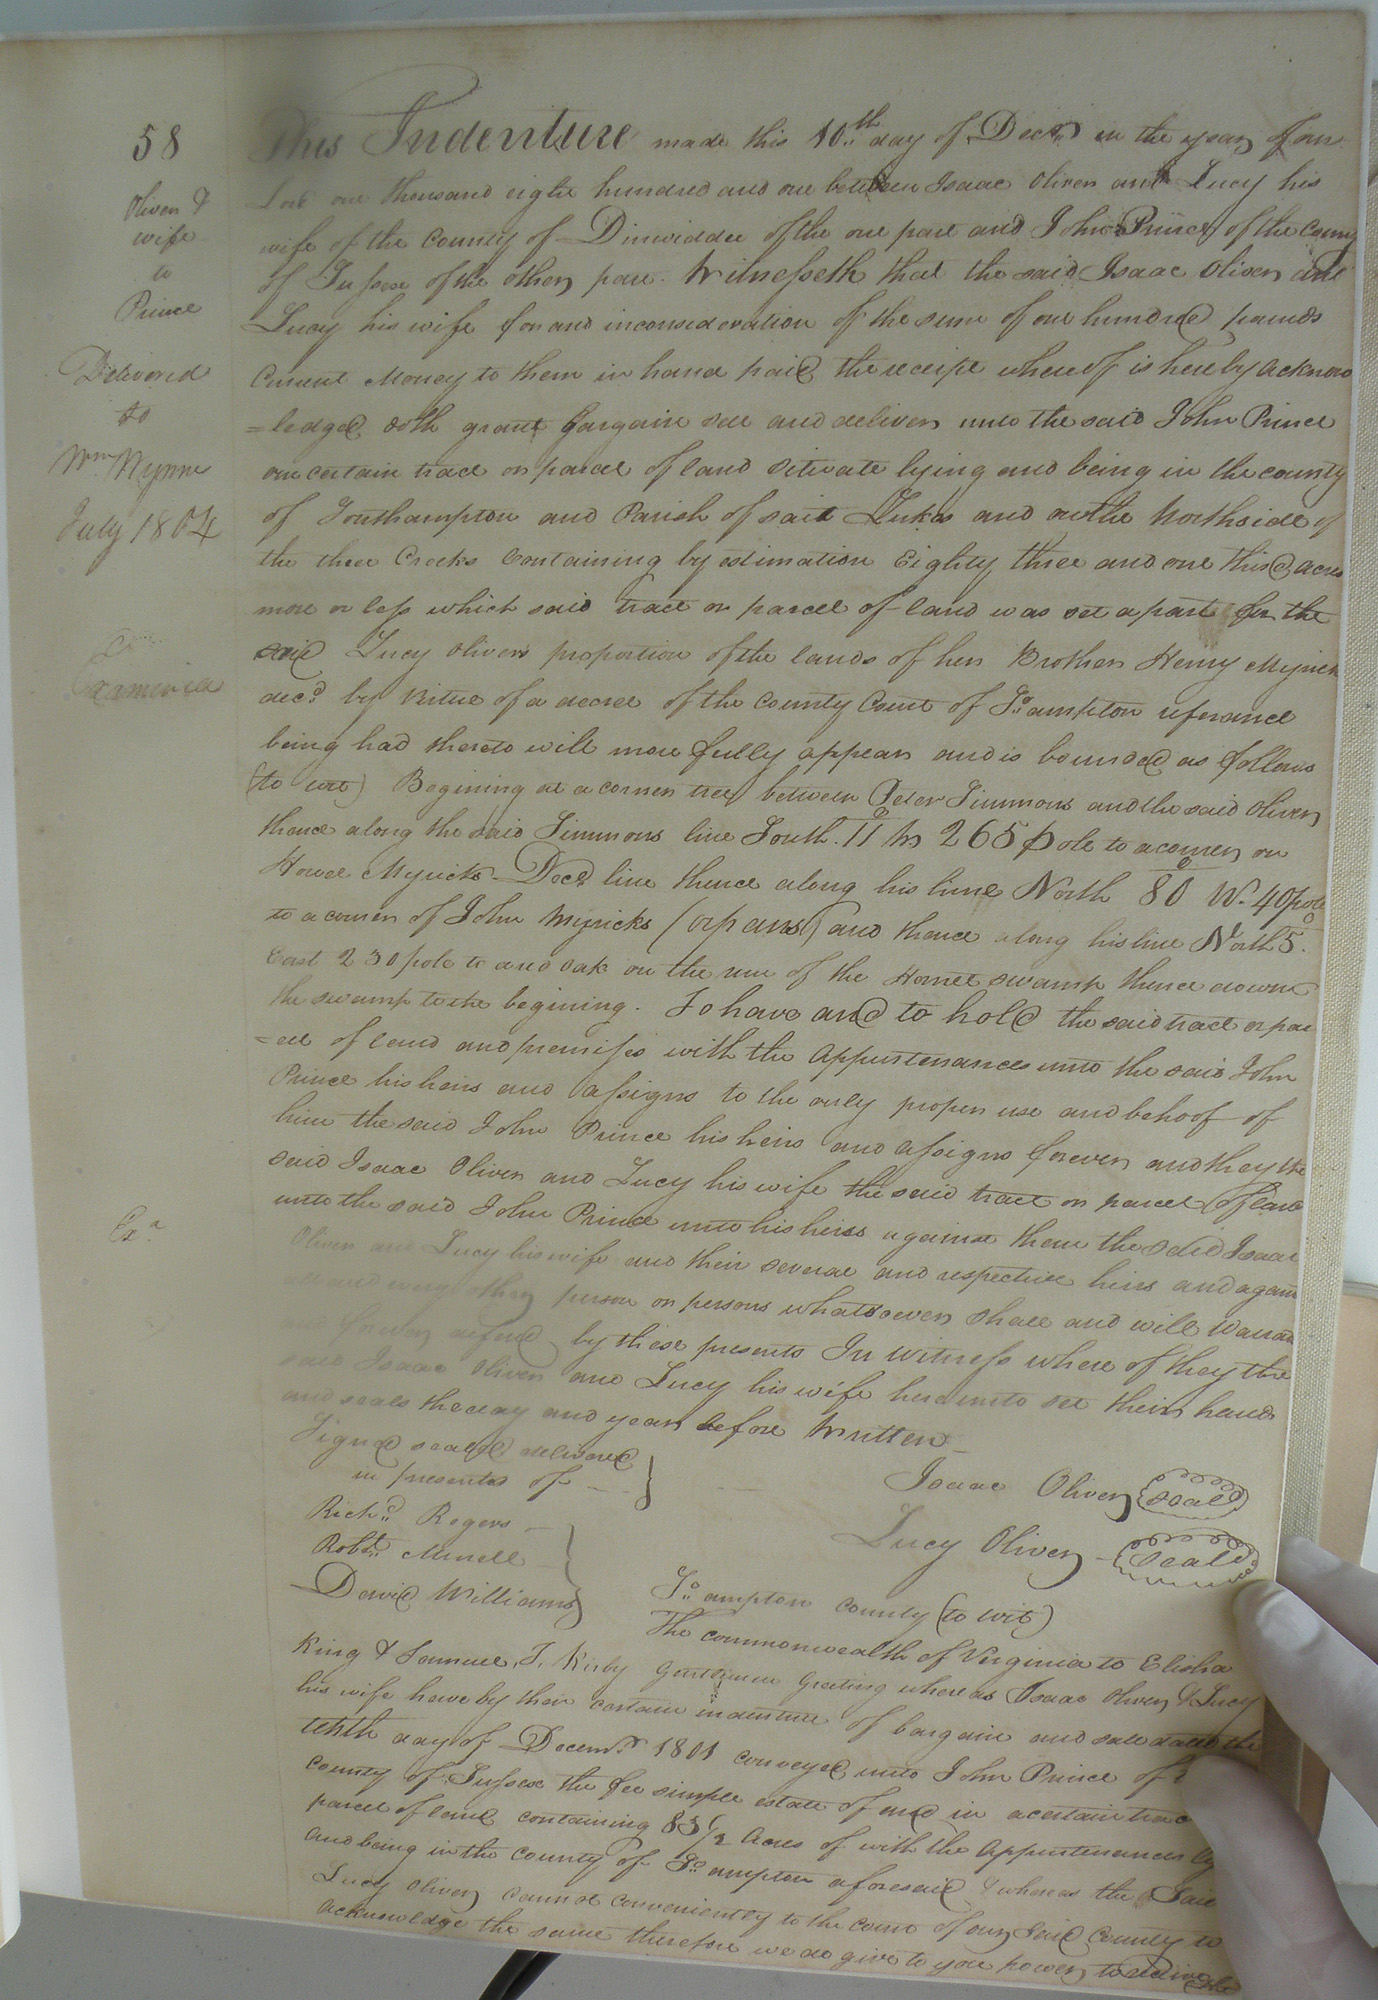 58
Oliver &
wife
to
Prince
Delivered
to
Wm Wynne
July 1804
Examined
Exa
This Indenture made this 10th day of Decr in the year of our
Lord one thousand eight hundred and one between Isaac Oliver and Lucy his
wife of the County of Dinwiddee of the one part and John Prince of the County
of Sussex of the other part. Witnesseth that the said Isaac Oliver and
Lucy his wife for and inconsideration of the sum of one hundred pounds
Current Money to them in hand paid the receipt whereof is hereby acknow
=ledged doth grant bargain sell and deliver unto the said John Prince
one certain tract or parcel of land situate lying and being in the county
of Southampton and Parish of saint Lukes and on the North side of
the three Creeks Containing by estimation Eighty three and one third acres
more or less which said tract or parcel of land was set apart for the
said Lucy Olivers proportion of the lands of her Brother Henry Myrick
decd by Virtue of a decree of the County Court of So ampton referance
being had thereto will more fully appear and is bounded as follows
(to wit) Begining at a corner tree between Peter Simmons and the said Oliver
thence along the said Simmons line South 11° W 265 pole to a corner on
Howel Myricks Decd line thence along his line North 80° W. 40 pole
to a corner of John Myricks (orpans) and thence along his line North 5°
East 230 pole to and oak on the run of the Hornet swamp thence down
the swamp to the begining. To have and to hold the said tract or par
=cel of land and premises with the appurtenances unto the said John
Prince his heirs and assigns to the only proper use and behoof of
him the said John Prince his heirs and assigns forever and they the
said Isaac Oliver and Lucy his wife the said tract or parcel of land
unto the said John Prince unto his heirs against them the said Isaac
Oliver and Lucy his wife and their several and respective heirs and against
all and every other person or persons whatsoever shall and will warrant
forever defend by these presents In Witness where of they the
said Isaac Oliver and Lucy his wife hereunto set their hands
and seals the day and year before Written
Signed sealed delivered
in presents of
Isaac Oliver seal
Richd Rogers
Lucy Oliver seal
Robt Murell
David Williams
So ampton County (to wit)
The commonwealth of Virginia to Elisha
King & Samuel T. Kirby Gentlemen Greeting whereas Isaac Oliver & Lucy
his wife have by their certain indenture of bargain and sale dated the
tenth day of Decemr 1801 conveyed unto John Prince of
County of Sussex the fee simple estate of and in a certain trac
parcel of land containing 83 1/2 Acres of with the appurtenances
and being in the County of So ampton aforesaid & whereas the Said
Lucy Oliver cannot conveniently to the court of our said County to
acknowledge the same therefore we do give to you power to recive the